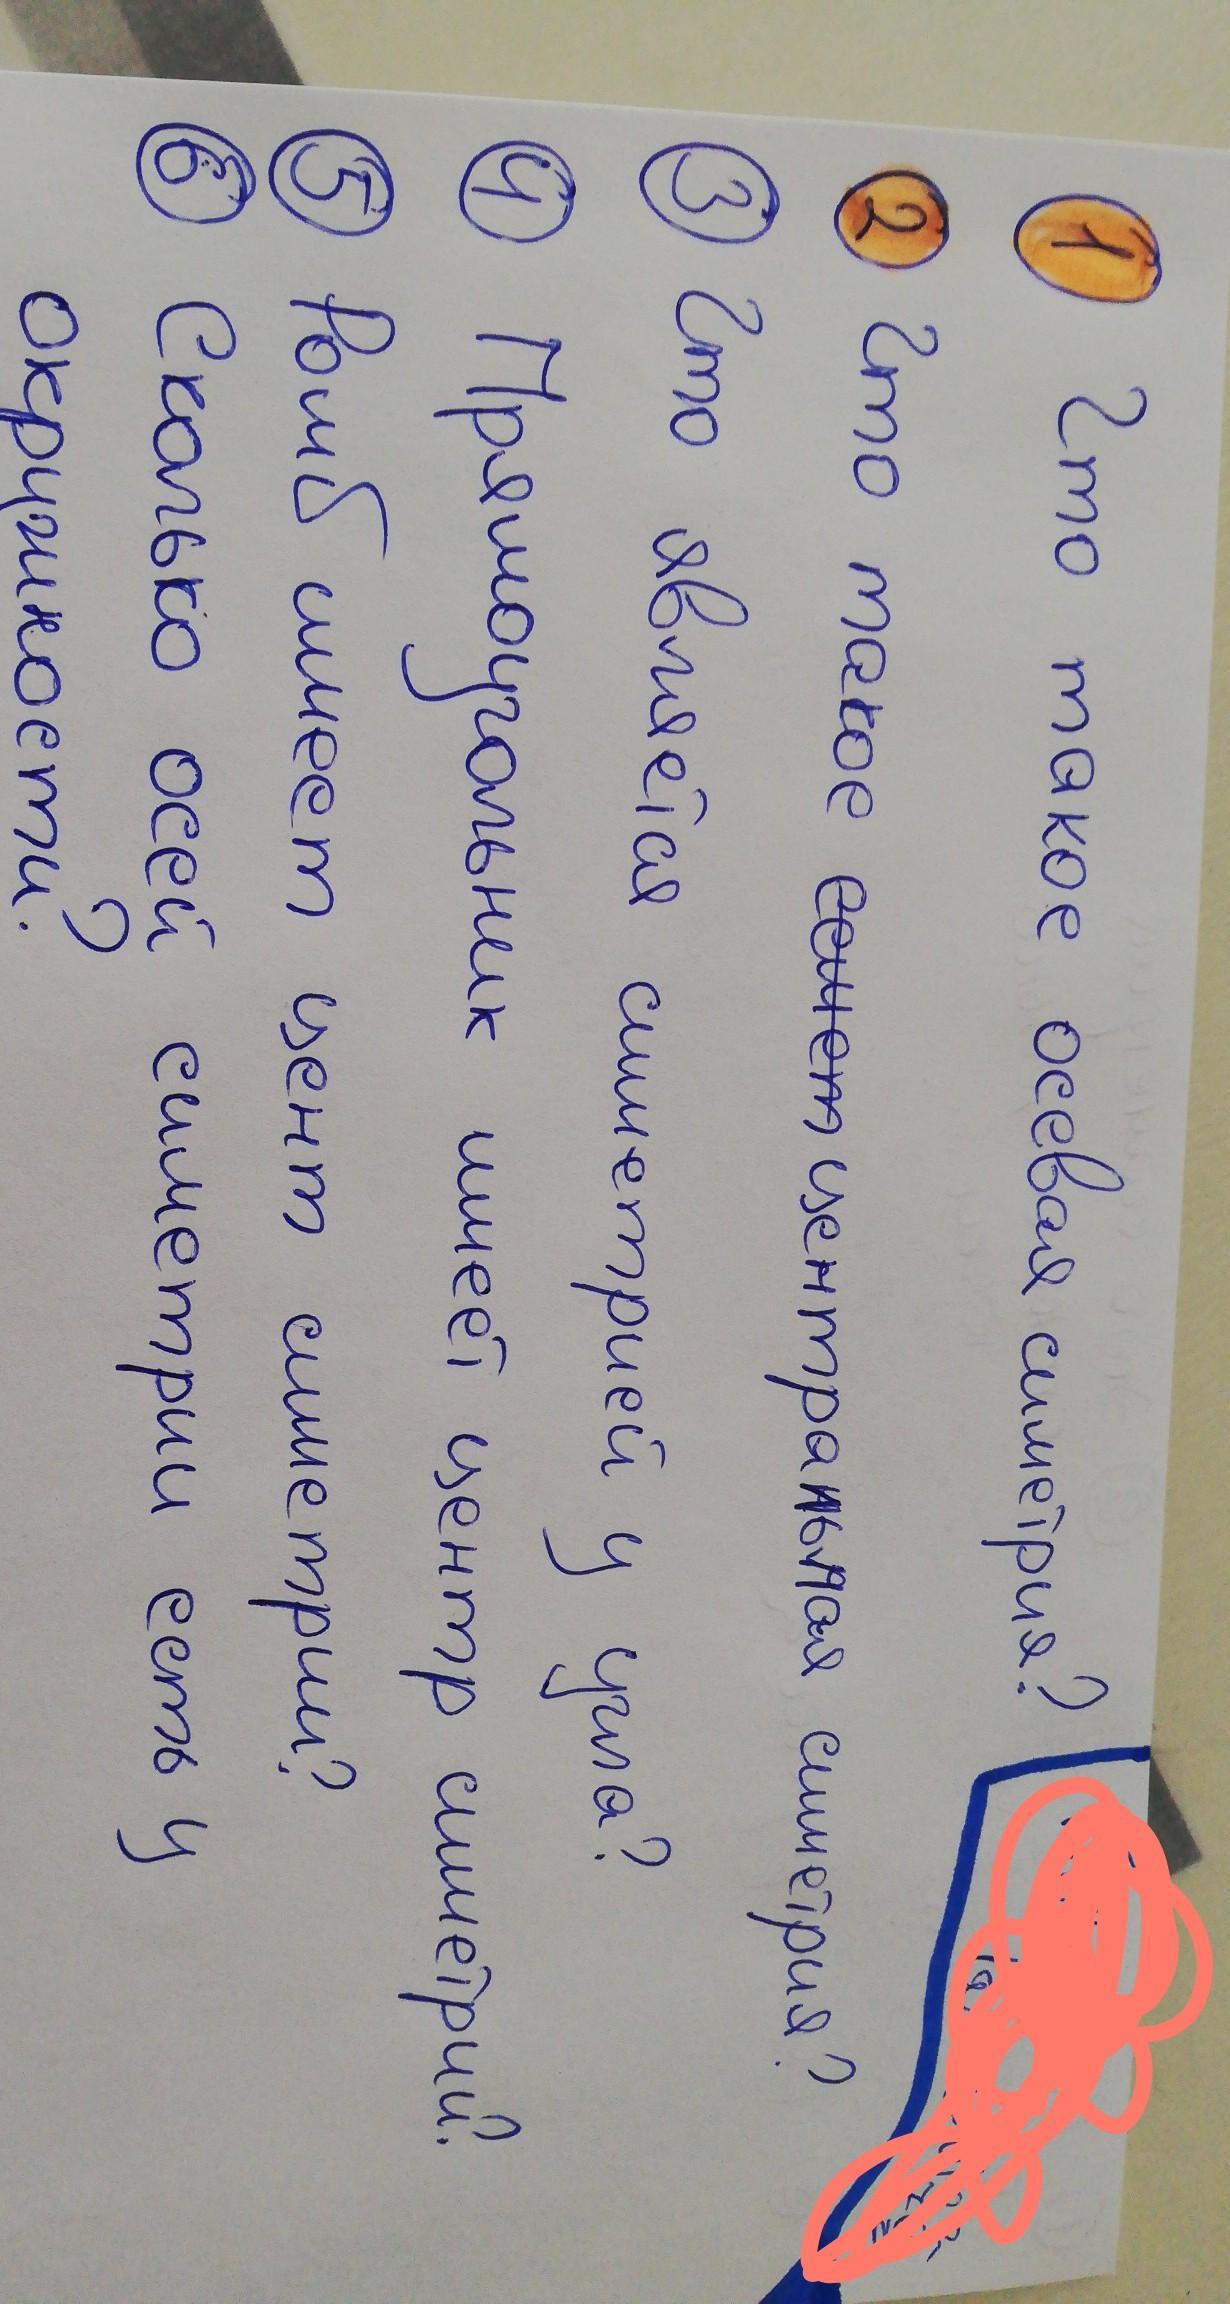 1 Что такое осевая симетрия?
2 Что такое центральная симетрия?
3 Что является симетрией у угла?
4 Прямоугольник имеет центр симетрий?
5 Ромб имеет цент симетрий?
6 Сколько осей симетрии есть у
окружности?